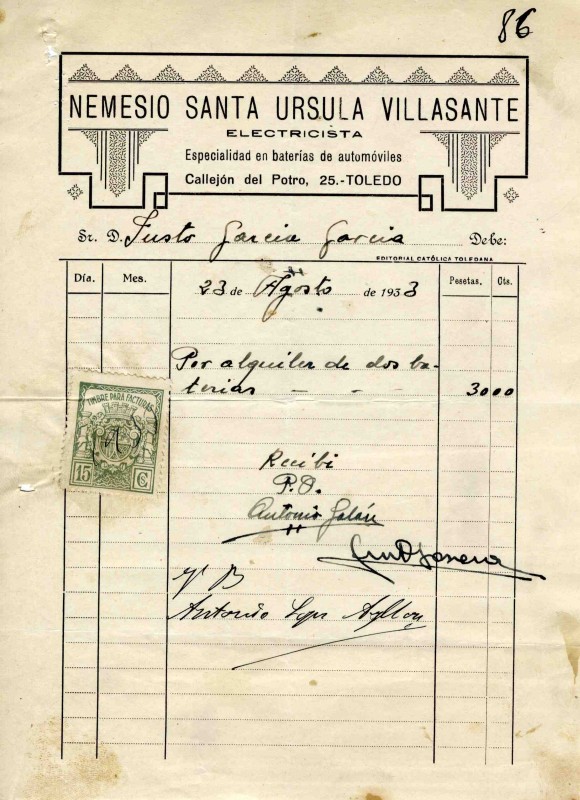 86
NEMESIO SANTA URSULA VILLASANTE
ELECTRICISTA
Especialidad en baterías de automóviles
Callejón del Potro, 25.-TOLEDO
Sr. D. Justo Garcia Garcia Debe:
EDITORIAL CATÓLICA TOLEDANA
Día. Mes. Pesetas. Cts.
23 de Agosto de 1933
Por alquiler de dos ba-
terias - - - 30 00
TIMBRE PARA FACTURAS
15 Cs
Recibi
P.O.
Antonio Galán
Vº Bº
Antonio